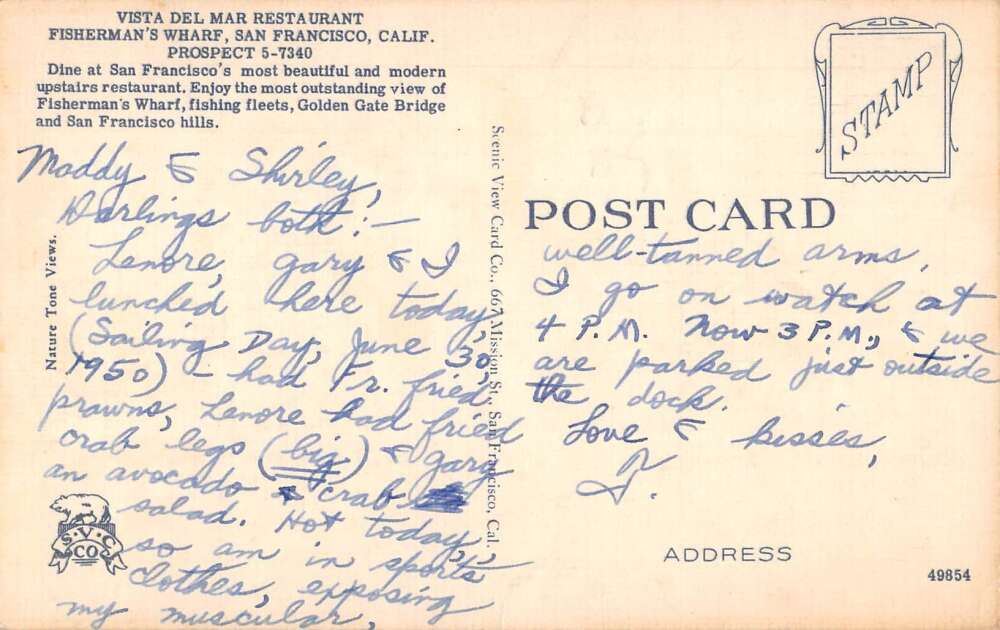 VISTA DEL MAR RESTAURANT
FISHERMAN'S WHARF, SAN FRANCISCO, CALIF.
PROSPECT 5-7340
Dine at San Francisco's most beautiful and modern
upstairs restaurant. Enjoy the most outstanding view of
Fisherman's Wharf, fishing fleets, Golden Gate Bridge
and San Francisco hills.
Maddy & Shirley,
Darlings both:-
Lenore, Gary & I
lunched here today,
(Sailing Day, June 30,
1950) - had Fr. fried
prawns, Lenore had fried
crab legs (big) & Gary
an avocado & crab
salad. Hot today,
so am in sports
clothes, exposing
my muscular,
Nature Tone Views.
S.V.C
CO
Scenic View Card Co., 667 Mission St., San Francisco, Cal.
STAMP
POST CARD
well-tanned arms.
I go on watch at
4 P.M. Now 3 P.M., & we
are parked just outside
the dock.
Love & kisses,
J.
ADDRESS
49854